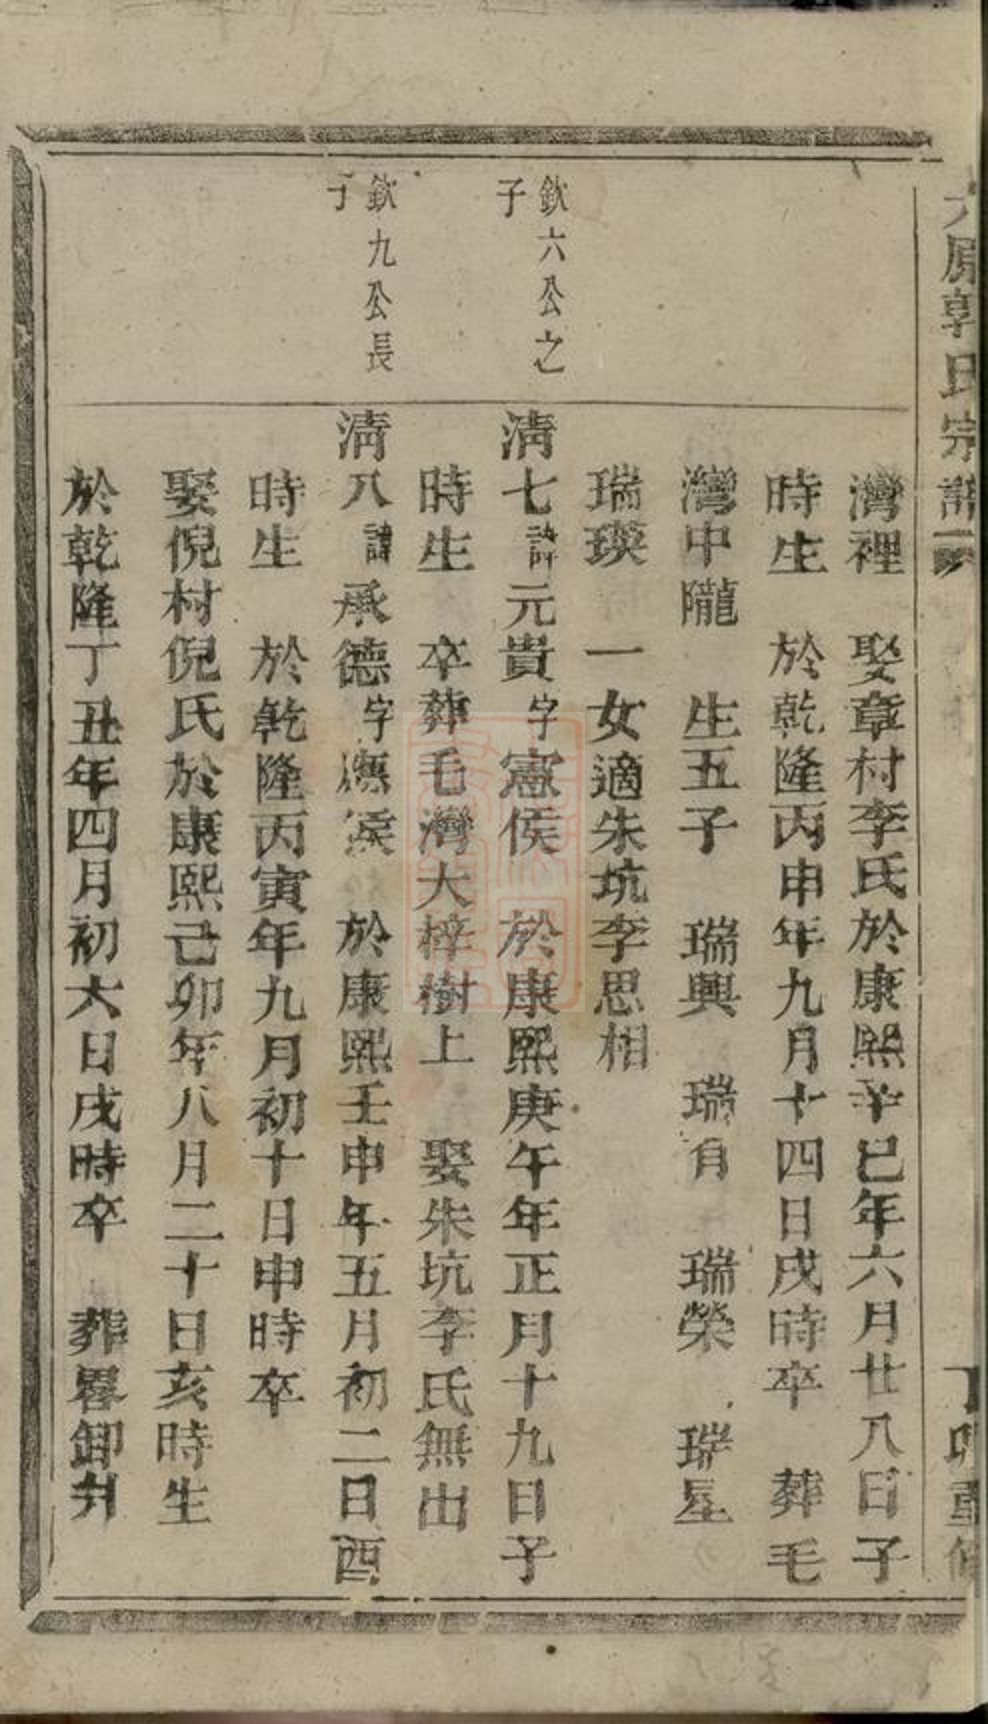 太原郭氏宗譜
丁卯重修
灣裡 娶章村李氏於康熙辛巳年六月廿八日子
時生 於乾隆丙申年九月十四日戌時卒 葬毛
灣中隴 生五子 瑞興 瑞有 瑞榮 瑞星
瑞瑛 一女適朱坑李思相
欽六公之子
清七諱元貴字憲侯 於康熙庚午年正月十九日子
時生 卒葬毛灣大梓樹上 娶朱坑李氏無出
欽九公長子
清八諱承德字 於康熙壬申年五月初二日酉
時生 於乾隆丙寅年九月初十日申時卒
娶倪村倪氏於康熙己卯年八月二十日亥時生
於乾隆丁丑年四月初六日戌時卒 葬畧卸